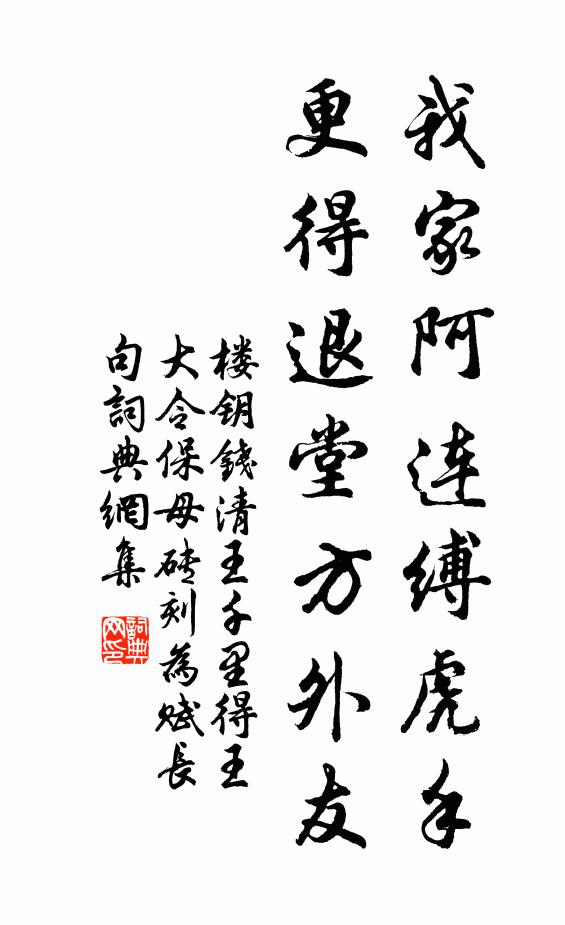 我家阿连缚虎手
更得退堂方外友
楼钥錢清王千里得王
大令保母砖刻為赋長
句詞典網集
詞典
网印